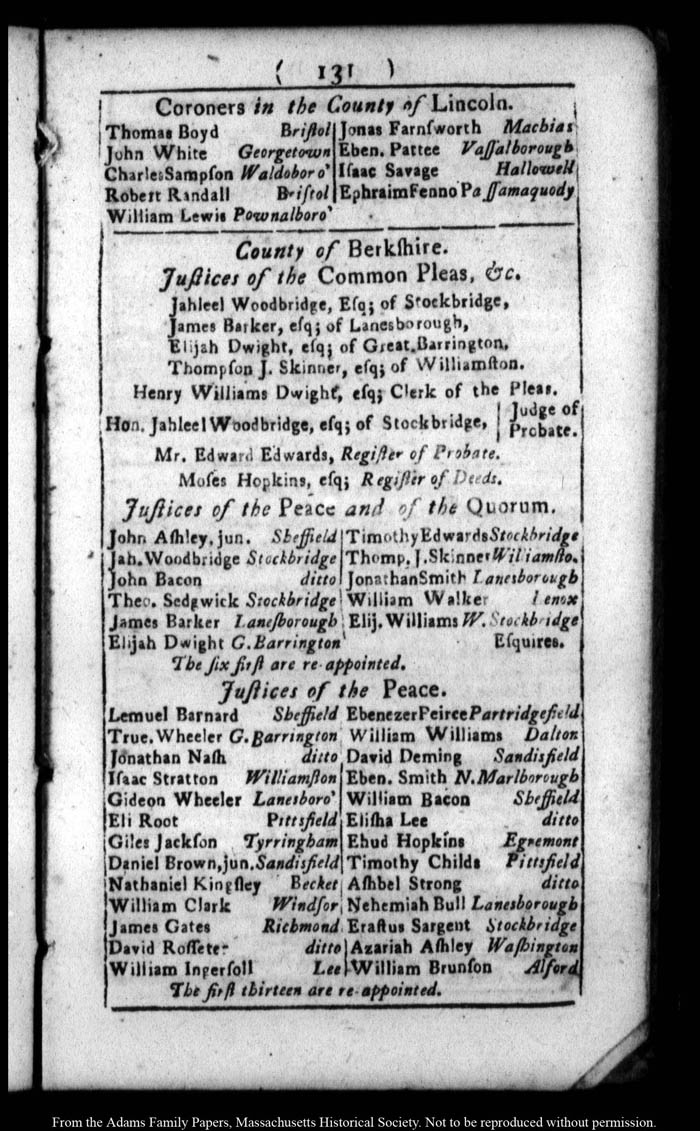 ( 131 )
Coroners in the County of Lincoln.
Thomas Boyd Briſtol
John White Georgetown
Charles Sampſon Waldoboro'
Robert Randall Briſtol
William Lewis Pownalboro'
Jonas Farnſworth Machias
Eben. Pattee Vaſſalborough
Iſaac Savage Hallowell
Ephraim Fenno Paſſamaquody
County of Berkſhire.
Juſtices of the Common Pleas, &c.
Jahleel Woodbridge, Eſq; of Stockbridge,
James Barker, eſq; of Lanesborough,
Elijah Dwight, eſq; of Great.Barrington,
Thompſon J. Skinner, eſq; of Williamſton.
Henry Williams Dwight, eſq; Clerk of the Pleas.
Hon. Jahleel Woodbridge, eſq; of Stockbridge, Judge of Probate.
Mr. Edward Edwards, Regiſter of Probate.
Moſes Hopkins, eſq; Regiſter of Deeds.
Juſtices of the Peace and of the Quorum.
John Aſhley, jun. Sheffield
Jah. Woodbridge Stockbridge
John Bacon ditto
Theo. Sedgwick Stockbridge
James Barker Laneſborough
Elijah Dwight G. Barrington
Timothy Edwards Stockbridge
Thomp. J. Skinner Williamſto.
Jonathan Smith Lanesborough
William Walker Lenox
Elij. Williams W. Stockbridge
Eſquires.
The ſix firſt are re-appointed.
Juſtices of the Peace.
Lemuel Barnard Sheffield
True. Wheeler G. Barrington
Jonathan Naſh ditto
Iſaac Stratton Williamſton
Gideon Wheeler Lanesboro'
Eli Root Pittsfield
Giles Jackſon Tyrringham
Daniel Brown, jun. Sandisfield
Nathaniel Kingſley Becket
William Clark Windſor
James Gates Richmond
David Roſſeter ditto
William Ingerſoll Lee
Ebenezer Peirce Partridgefield
William Williams Dalton
David Deming Sandisfield
Eben. Smith N. Marlborough
William Bacon Sheffield
Eliſha Lee ditto
Ehud Hopkins Egremont
Timothy Childs Pittsfield
Aſhbel Strong ditto
Nehemiah Bull Lanesborough
Eraſtus Sargent Stockbridge
Azariah Aſhley Waſhington
William Brunſon Alford
The firſt thirteen are re-appointed.
From the Adams Family Papers, Massachusetts Historical Society. Not to be reproduced without permission.